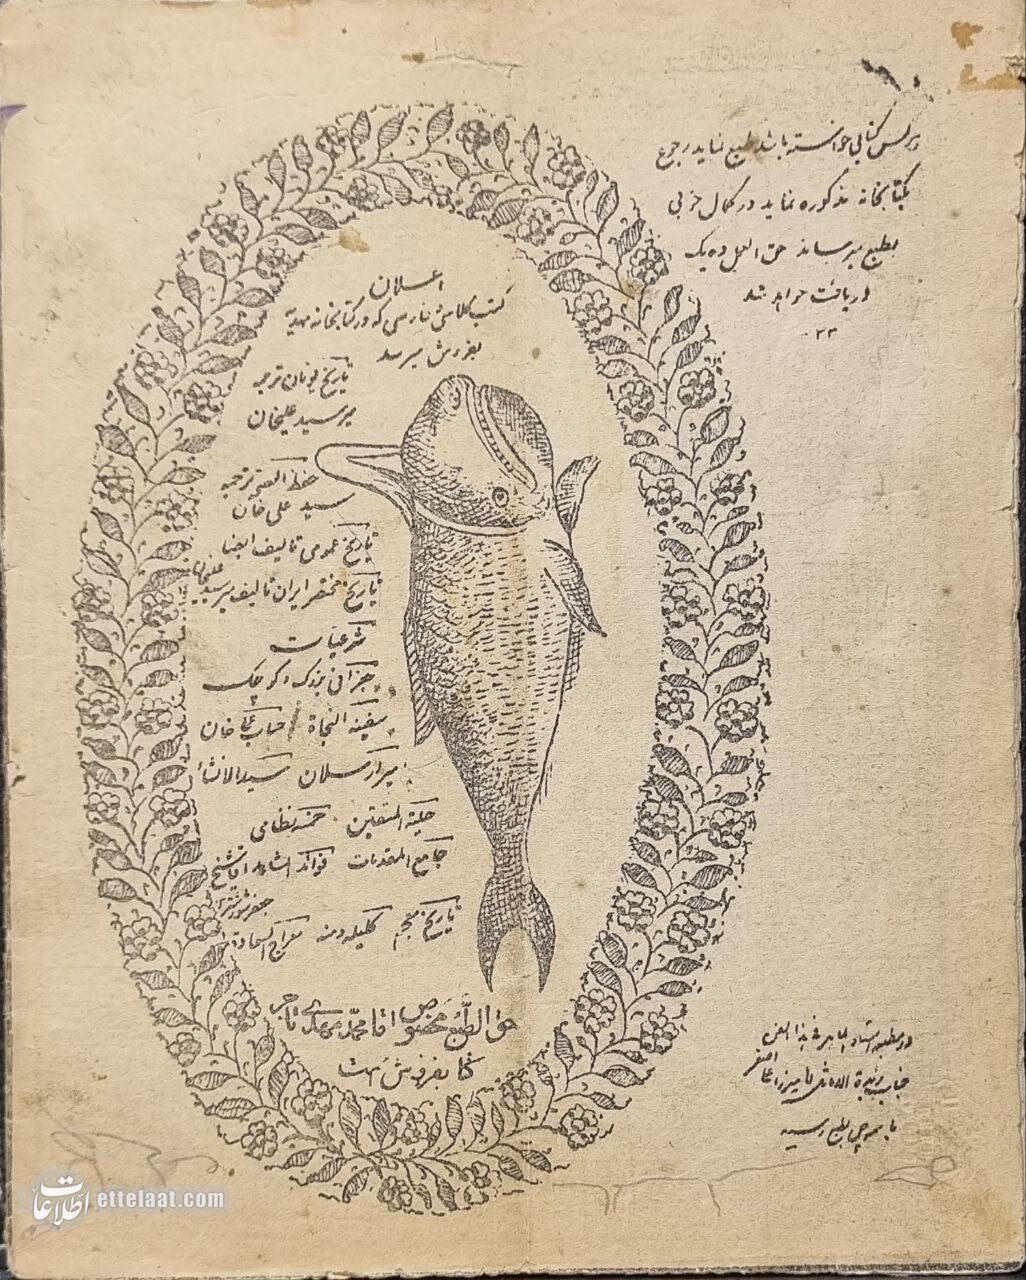 هر کس کتابی خواسته باشد طبع نماید رجوع
بکتابخانه مذکوره نماید در کمال خوبی
بطبع میرساند حق العمل ده یک
دریافت خواهد شد
۲۲
اعلان
کتب کلاسی فارسی که در کتابخانه مهدیه
بفروش میرسد
تاریخ یونان ترجمه
میرسید علیخان
حفظ الصحه ترجمه
سید علی خان
تاریخ عمومی تالیف ایضا
تاریخ مختصر ایران تالیف میرسید علیخان
شرعیات
جغرافی بزرگ و کوچک
سفینه النجاة حساب خان
میرارسلان سیدالانشاء
حلیة المتقین خمسه نظامی
جامع المقدمات فوائد المشاهد اقا شیخ
جعفر شوشتری
تاریخ معجم کلیله و دمنه معراج السعادة
حق الطبع مخصوص اقا محمد مهدی تاجر
کتابفروش است
در مطبعه استاد الماهر فی هذا الفن
جناب میرزا اصغر
باسمچی بطبع رسید
اطلاعات ettelaat.com